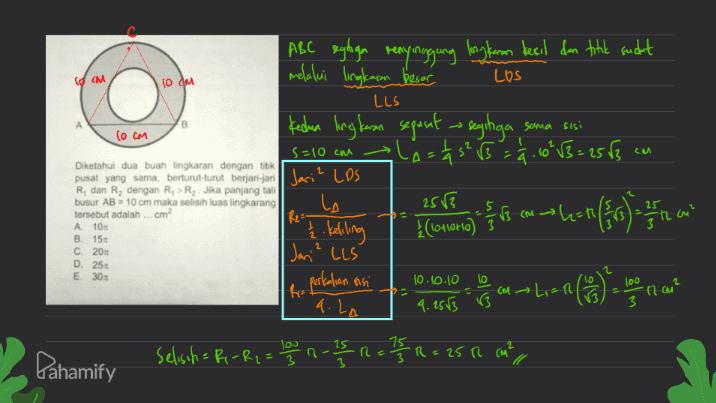 C
10 cm
10 cm
A
B
10 cm
Diketahui dua buah lingkaran dengan titik
pusat yang sama, berturut-turut berjari-jari
R₁ dan R₂ dengan R₁ > R₂. Jika panjang tali
busur AB = 10 cm maka selisih luas lingkarang
tersebut adalah ... cm²
A. 10π
B. 15π
C. 20π
D. 25π
E. 30π
ABC segitiga menyinggung lingkaran kecil dan titik sudut
melalui lingkaran besar LDS
LLS
Kedua lingkaran sepusat → segitiga sama sisi
s = 10 cm → L△ = 1/4 s² √3 = 1/4 . 10² √3 = 25√3 cm
Jari² LDS
R₂ = L△ / (1/2 . keliling) = 25√3 / (1/2 (10+10+10)) = 5/3 √3 cm → L₂ = π (5/3 √3)² = 25/3 π cm²
Jari² LLS
R₁ = perkalian sisi / (4 . L△) = 10.10.10 / (4.25√3) = 10/√3 cm → L₁ = π (10/√3)² = 100/3 π cm²
Selisih = R₁ - R₂ = 100/3 π - 25/3 π = 75/3 π = 25 π cm²
Pahamify